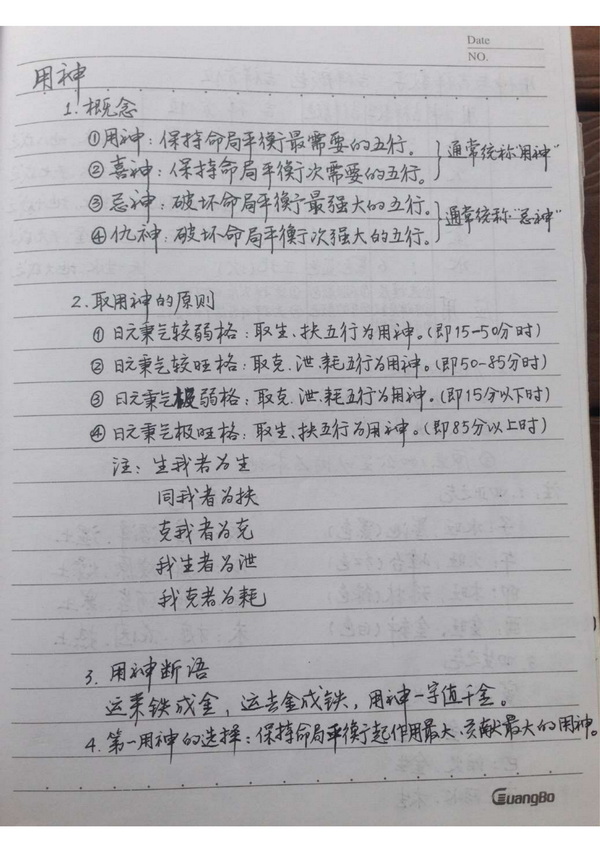 Date
NO.
用神
1. 概念
①用神：保持命局平衡最需要的五行。
②喜神：保持命局平衡次需要的五行。
通常统称"用神"
③忌神：破坏命局平衡最强大的五行。
④仇神：破坏命局平衡次强大的五行。
通常统称"忌神"
2.取用神的原则
①日元秉气较弱格：取生、扶五行为用神。(即15-50分时)
②日元秉气较旺格：取克.泄.耗五行为用神。(即50-85分时)
③日元秉气极弱格：取克.泄.耗五行为用神。(即15分以下时)
④日元秉气极旺格：取生、扶五行为用神。(即85分以上时)
注：生我者为生
同我者为扶
克我者为克
我生者为泄
我克者为耗
3.用神断语
运来铁成金，运去金成铁，用神一字值千金。
4.第一用神的选择：保持命局平衡起作用最大、贡献最大的用神。
GuangBo